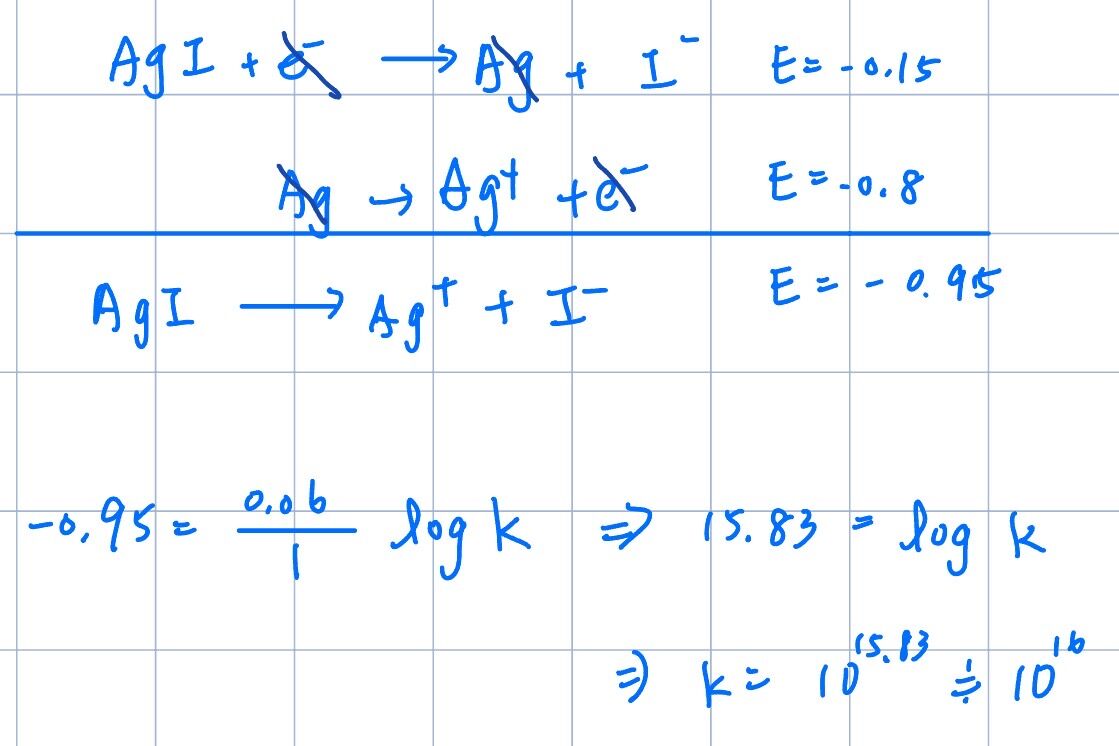 AgI + e⁻ → Ag + I⁻ E = -0.15
Ag → Ag⁺ + e⁻ E = -0.8
AgI → Ag⁺ + I⁻ E = -0.95
-0.95 = 0.06/1 log k ⇒ 15.83 = log k
⇒ k = 10^15.83 ≑ 10^16